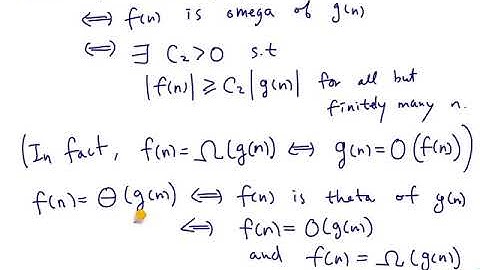 ⟺ f(n) is omega of g(n)
⟺ ∃ C₂>0 s.t
|f(n)| ⩾ C₂|g(n)| for all but
finitely many n.
(In fact, f(n)=Ω(g(n)) ⟺ g(n)=O(f(n)))
f(n)=Θ(g(n)) ⟺ f(n) is theta of g(n)
⟺ f(n)=O(g(n))
and f(n)=Ω(g(n))